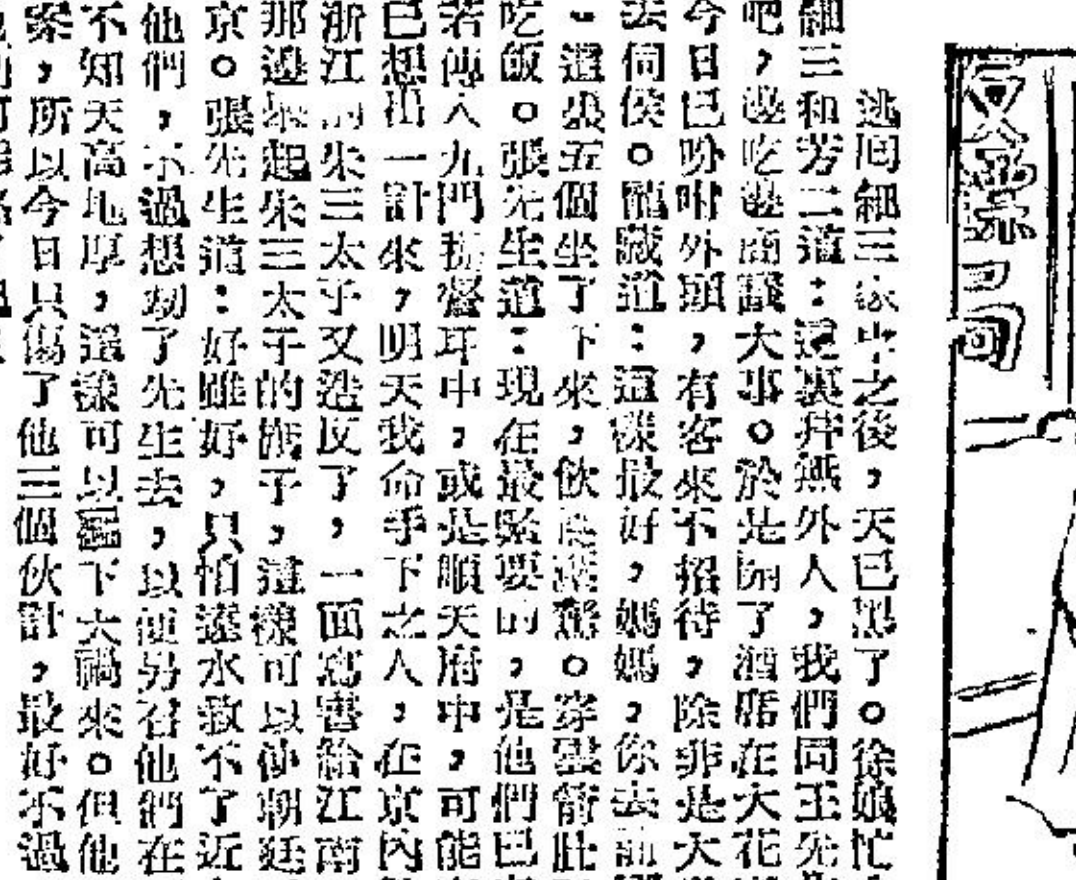 逃回細三家中之後，天已黑了。徐娘忙
細三和芳二道：這裏幷無外人，我們同王先
吧，邊吃邊商議大事。於是開了酒席在大花
今日已吩咐外頭，有客來不招待，除非是大
去伺候。龍藏道：這樣最好，媽媽，你去
這裏五個坐了下來，飲
吃飯。張先生道：現在最緊要的，是他們已
若傳入九門提督耳中，或是順天府中，可能
已想出一計來，明天我命手下之人，在京內
浙江的朱三太子又造反了，一面寫書給江南
那邊
京。張先生道：好雖好，只怕遠水救不了近
他們，不過想刧了先生去，以便另召他們在
不知天高地厚，這樣可以闖下大禍來。但他
案，所以今日只傷了他三個伙計，最好不過